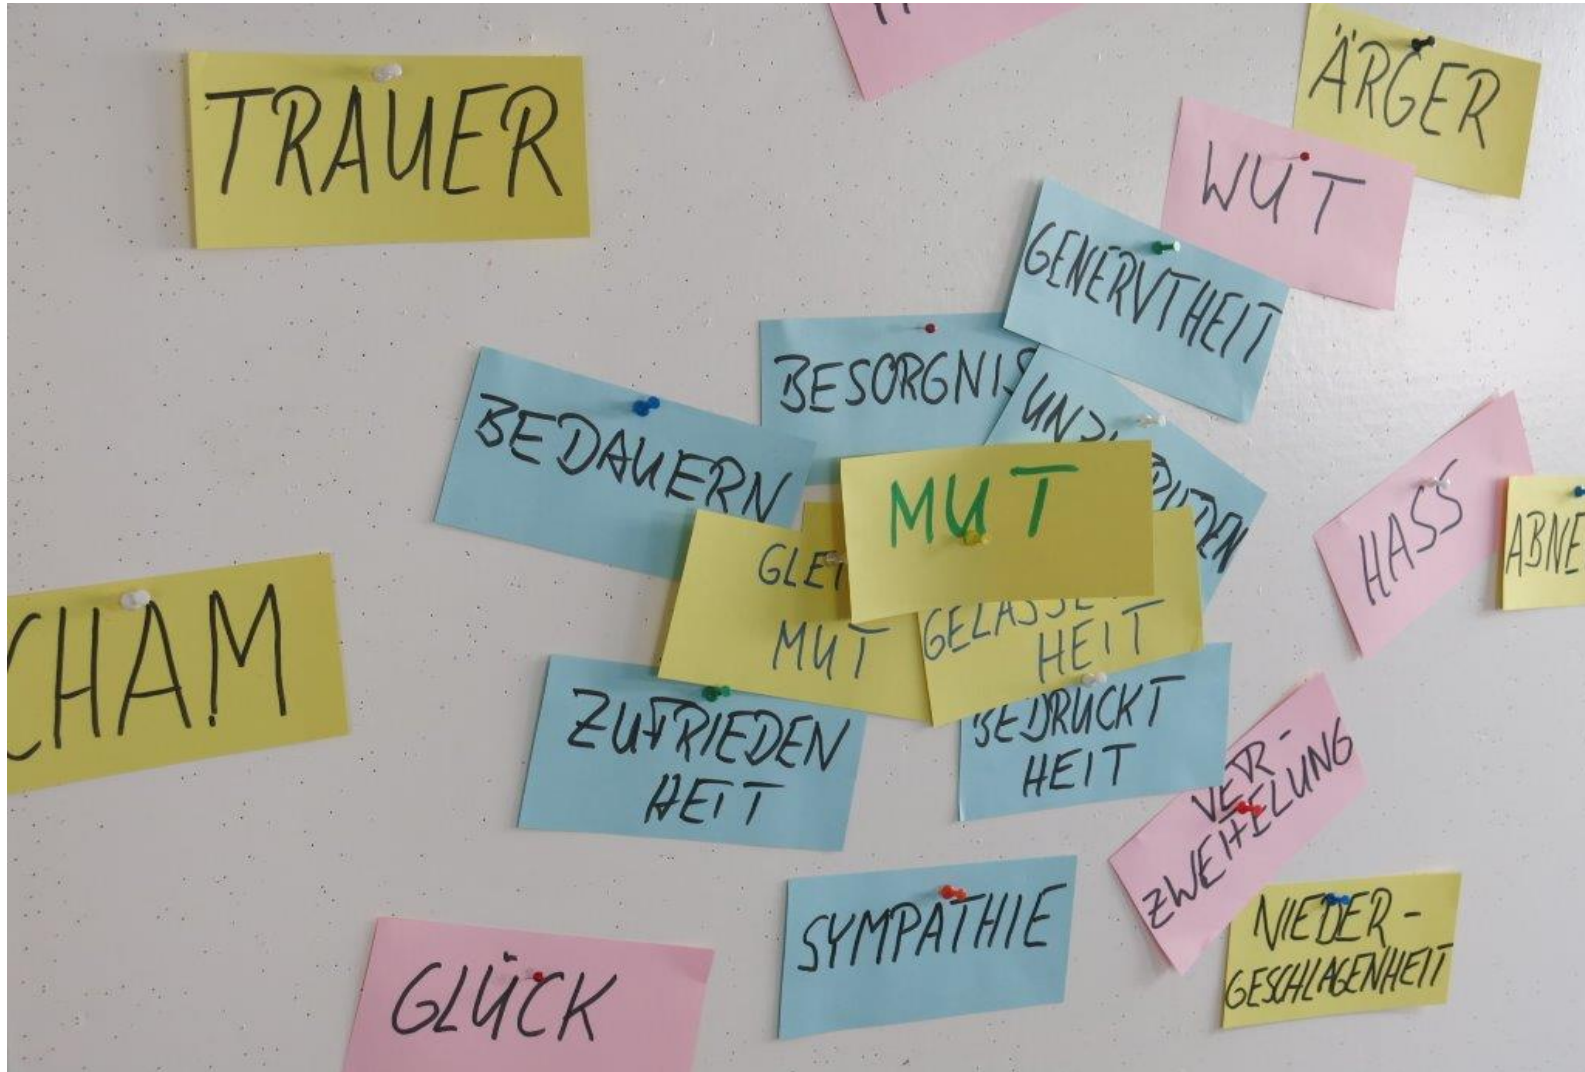 TRAUER
ÄRGER
WUT
GENERVTHEIT
BESORGNIS
BEDAUERN
MUT
HASS
ABNE
MUT
HEIT
CHAM
ZUFRIEDEN
HEIT
BEDRÜCKT
HEIT
VER-
ZWEIFELUNG
SYMPATHIE
NIEDER-
GESCHLAGENHEIT
GLÜCK